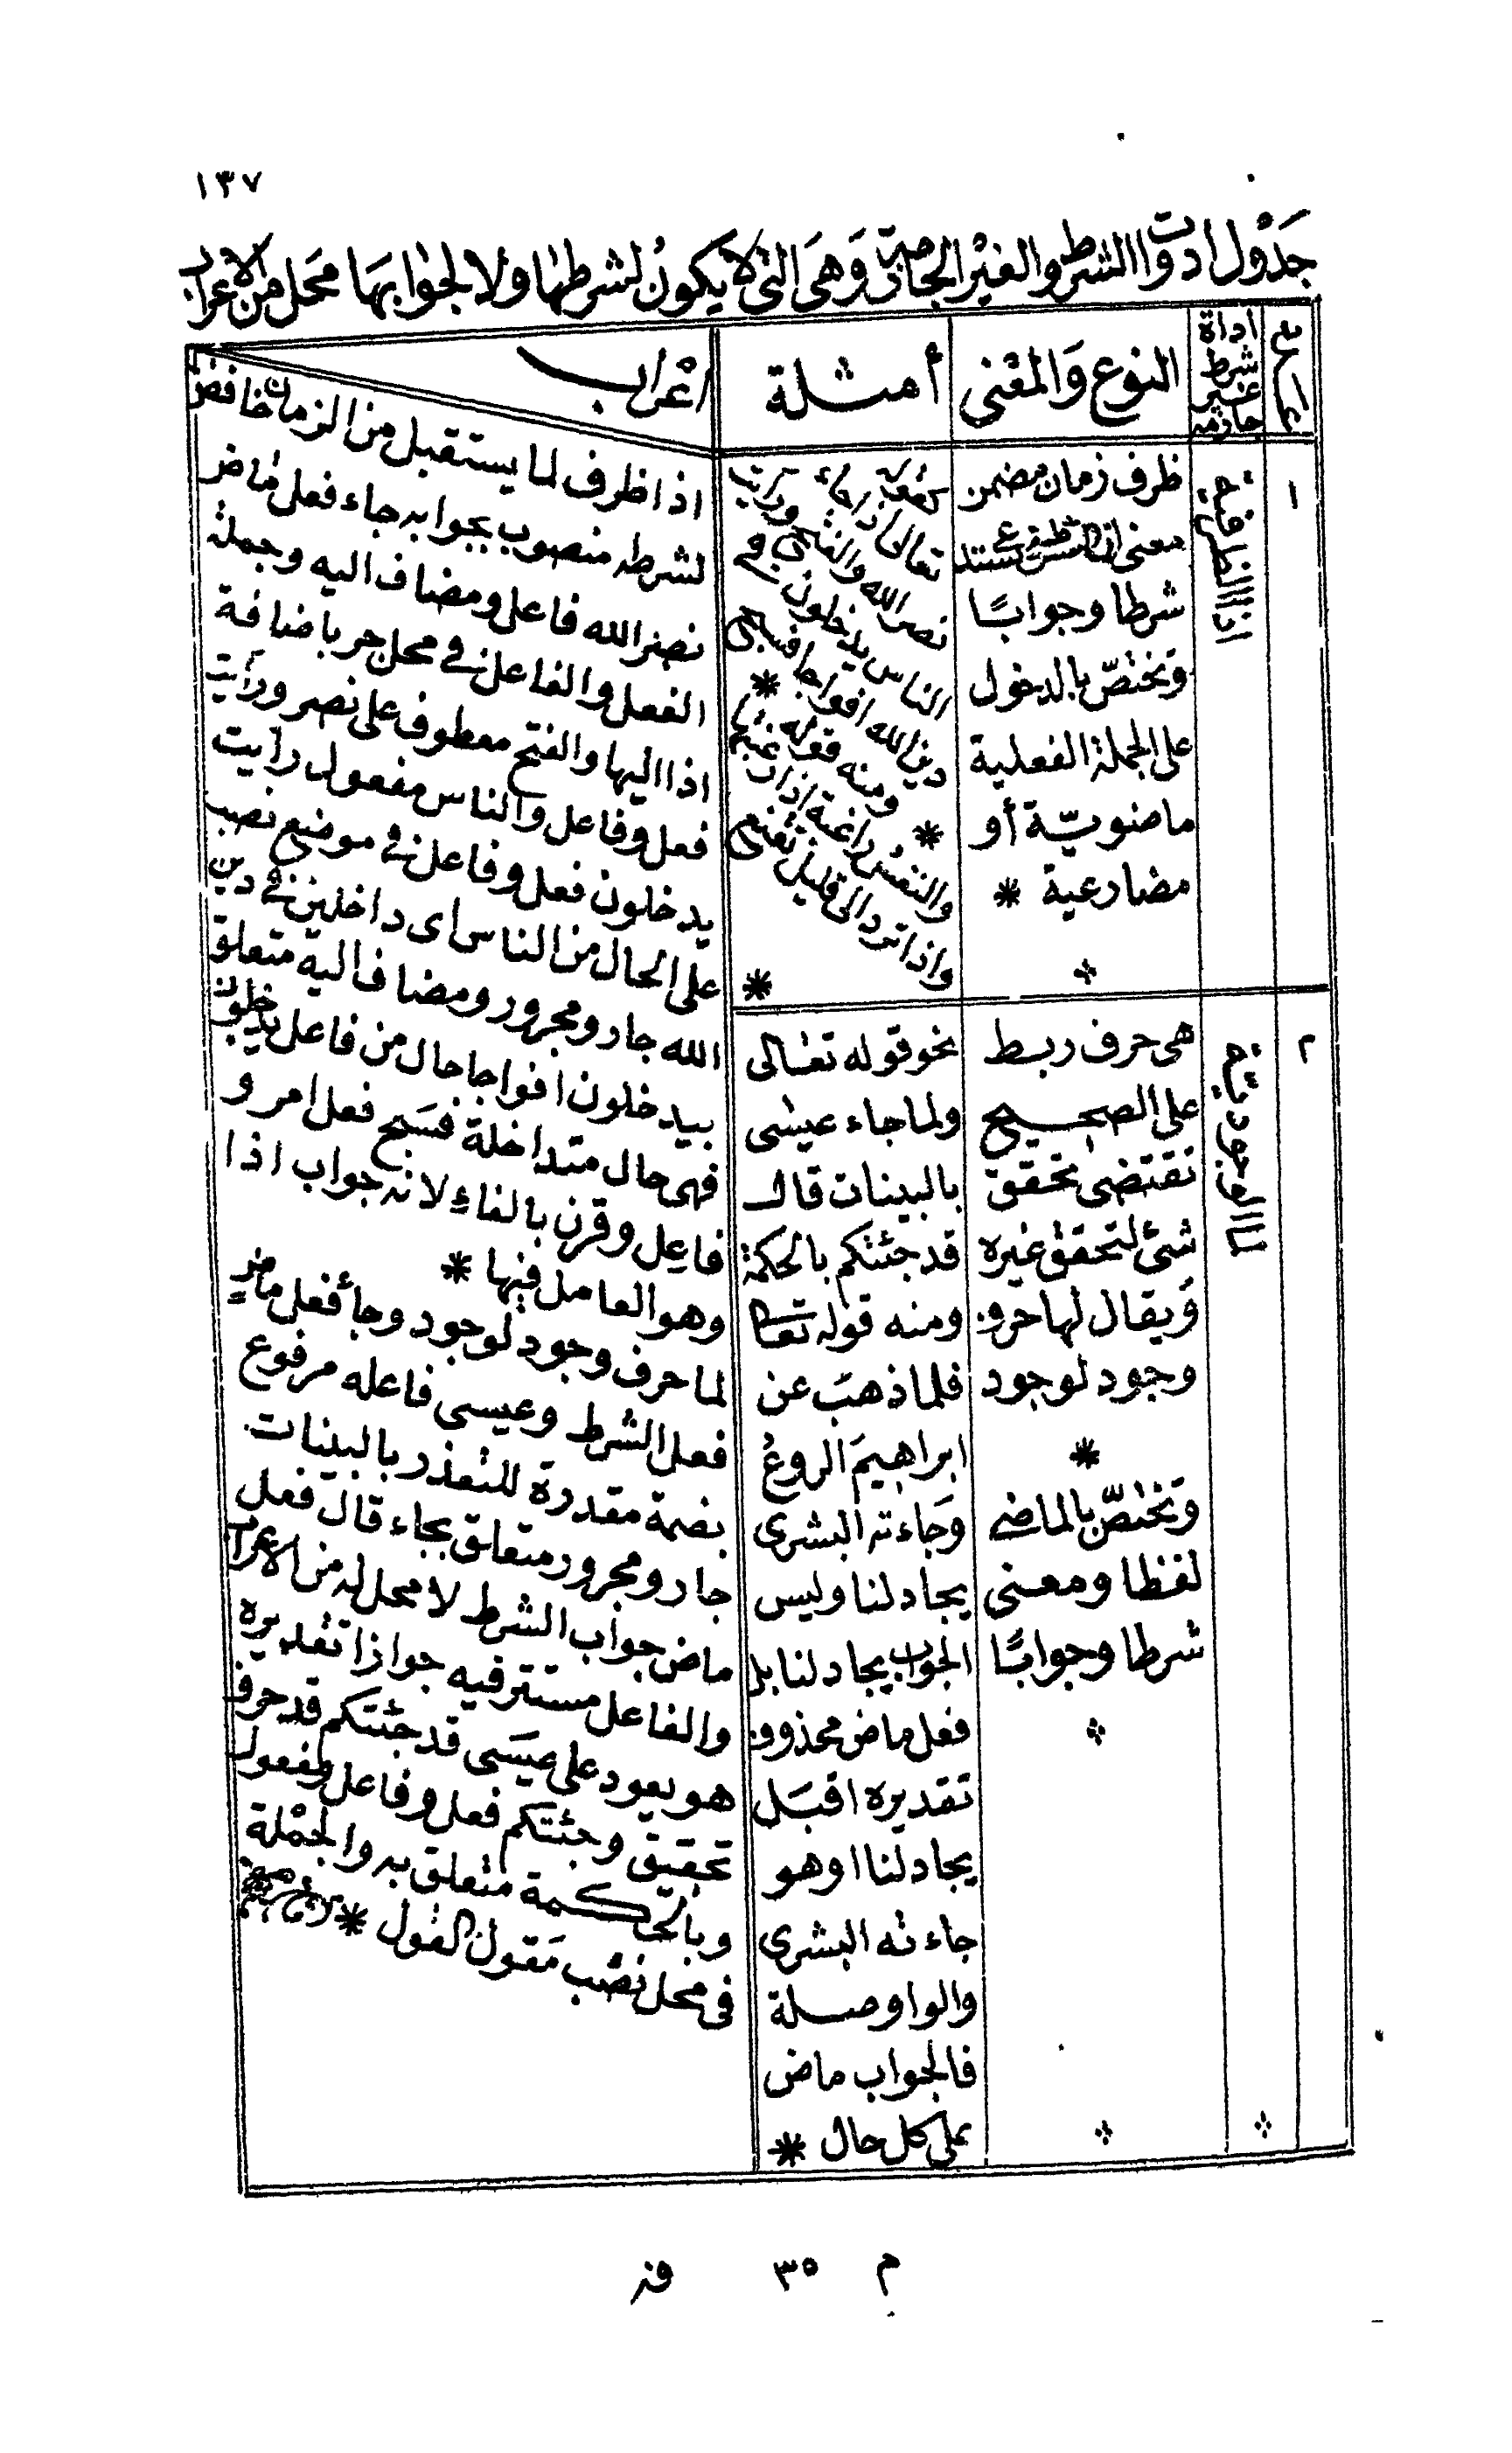 ١٣٧
جَدْوَل أدوات الشرط والغَيْر الجازمة وَهىَ التى لا يكونُ لشرطها ولا لجوابهَا محَل من الاعراب
أداة شرط غير جازمة
النوع وَالمعْنى
أمثلة
اعْراب
١
اذا الظرفية
ظرف زمان مضمن
معنى ان الشرطية تستدعى
شرطا وجوابًا
وتختصّ بالدخول
على الجملة الفعلية
ماضويّة أو
مضارعية *
كقوله
تعالى اذا جاء
نصر الله والفتح ورأيت
الناس يدخلون فى
دين الله افواجا فسبح *
ومنه قوله
* والنفسُ راغبة اذا رغبتها
واذا ترد الى قليل تقنع
*
اذا ظرف لما يستقبل من الزمان خافض
لشرطه منصوب بجوابه جاء فعل ماض
نصر الله فاعل ومضاف اليه وجملة
الفعل والفاعل فى محل جر باضافة
اذا اليها والفتح معطوف على نصر ورأيت
فعل وفاعل والناس مفعول رأيت
يدخلون فعل وفاعل فى موضع نصب
على الحال من الناس اى داخلين فى دين
الله جار ومجرور ومضاف اليه متعلق
بيدخلون افواجا حال من فاعل يدخلون
فهى حال متداخلة فسَبح فعل امر و
فاعِل وقرن بالفاءِ لانه جواب اذا
وهو العامل فيها *
٢
لما الوجودية
هى حرف ربط
على الصحيح
تقتضى تحقق
شئ لتحقق غيره
وَيقال لها حرف
وجود لوجود
*
وتختصّ بالماضى
لفظا ومعنى
شرطا وجوابًا
نحو قوله تعالى
ولما جاء عيسٰى
بالبينات قال
قد جئتكم بالحكمة
ومنه قوله تعالى
فلما ذهبَ عن
ابراهيمَ الروعُ
وَجاءته البشرى
يجادلنا وليس
الجواب يجادلنا بل
فعل ماض محذوف
تقديره اقبَل
يجادلنا او هو
جاءته البشرى
والواو صلة
فالجواب ماض
على كل حال *
لما حرف وجود لوجود وجاء فعل ماض
فعل الشرط وعيسى فاعله مرفوع
بضمة مقدرة للتعذر بالبينات
جار ومجرور متعلق بجاء قال فعل
ماض جواب الشرط لا محل له من الاعراب
والفاعل مستتر فيه جوازا تقديره
هو يعود على عيسَى قد جئتكم قد حرف
تحقيق وجئتكم فعل وفاعل ومفعول
وبالحكمة متعلق به والجمْلة
فى محل نصْب مَقول القول *
م ٣٥ فز